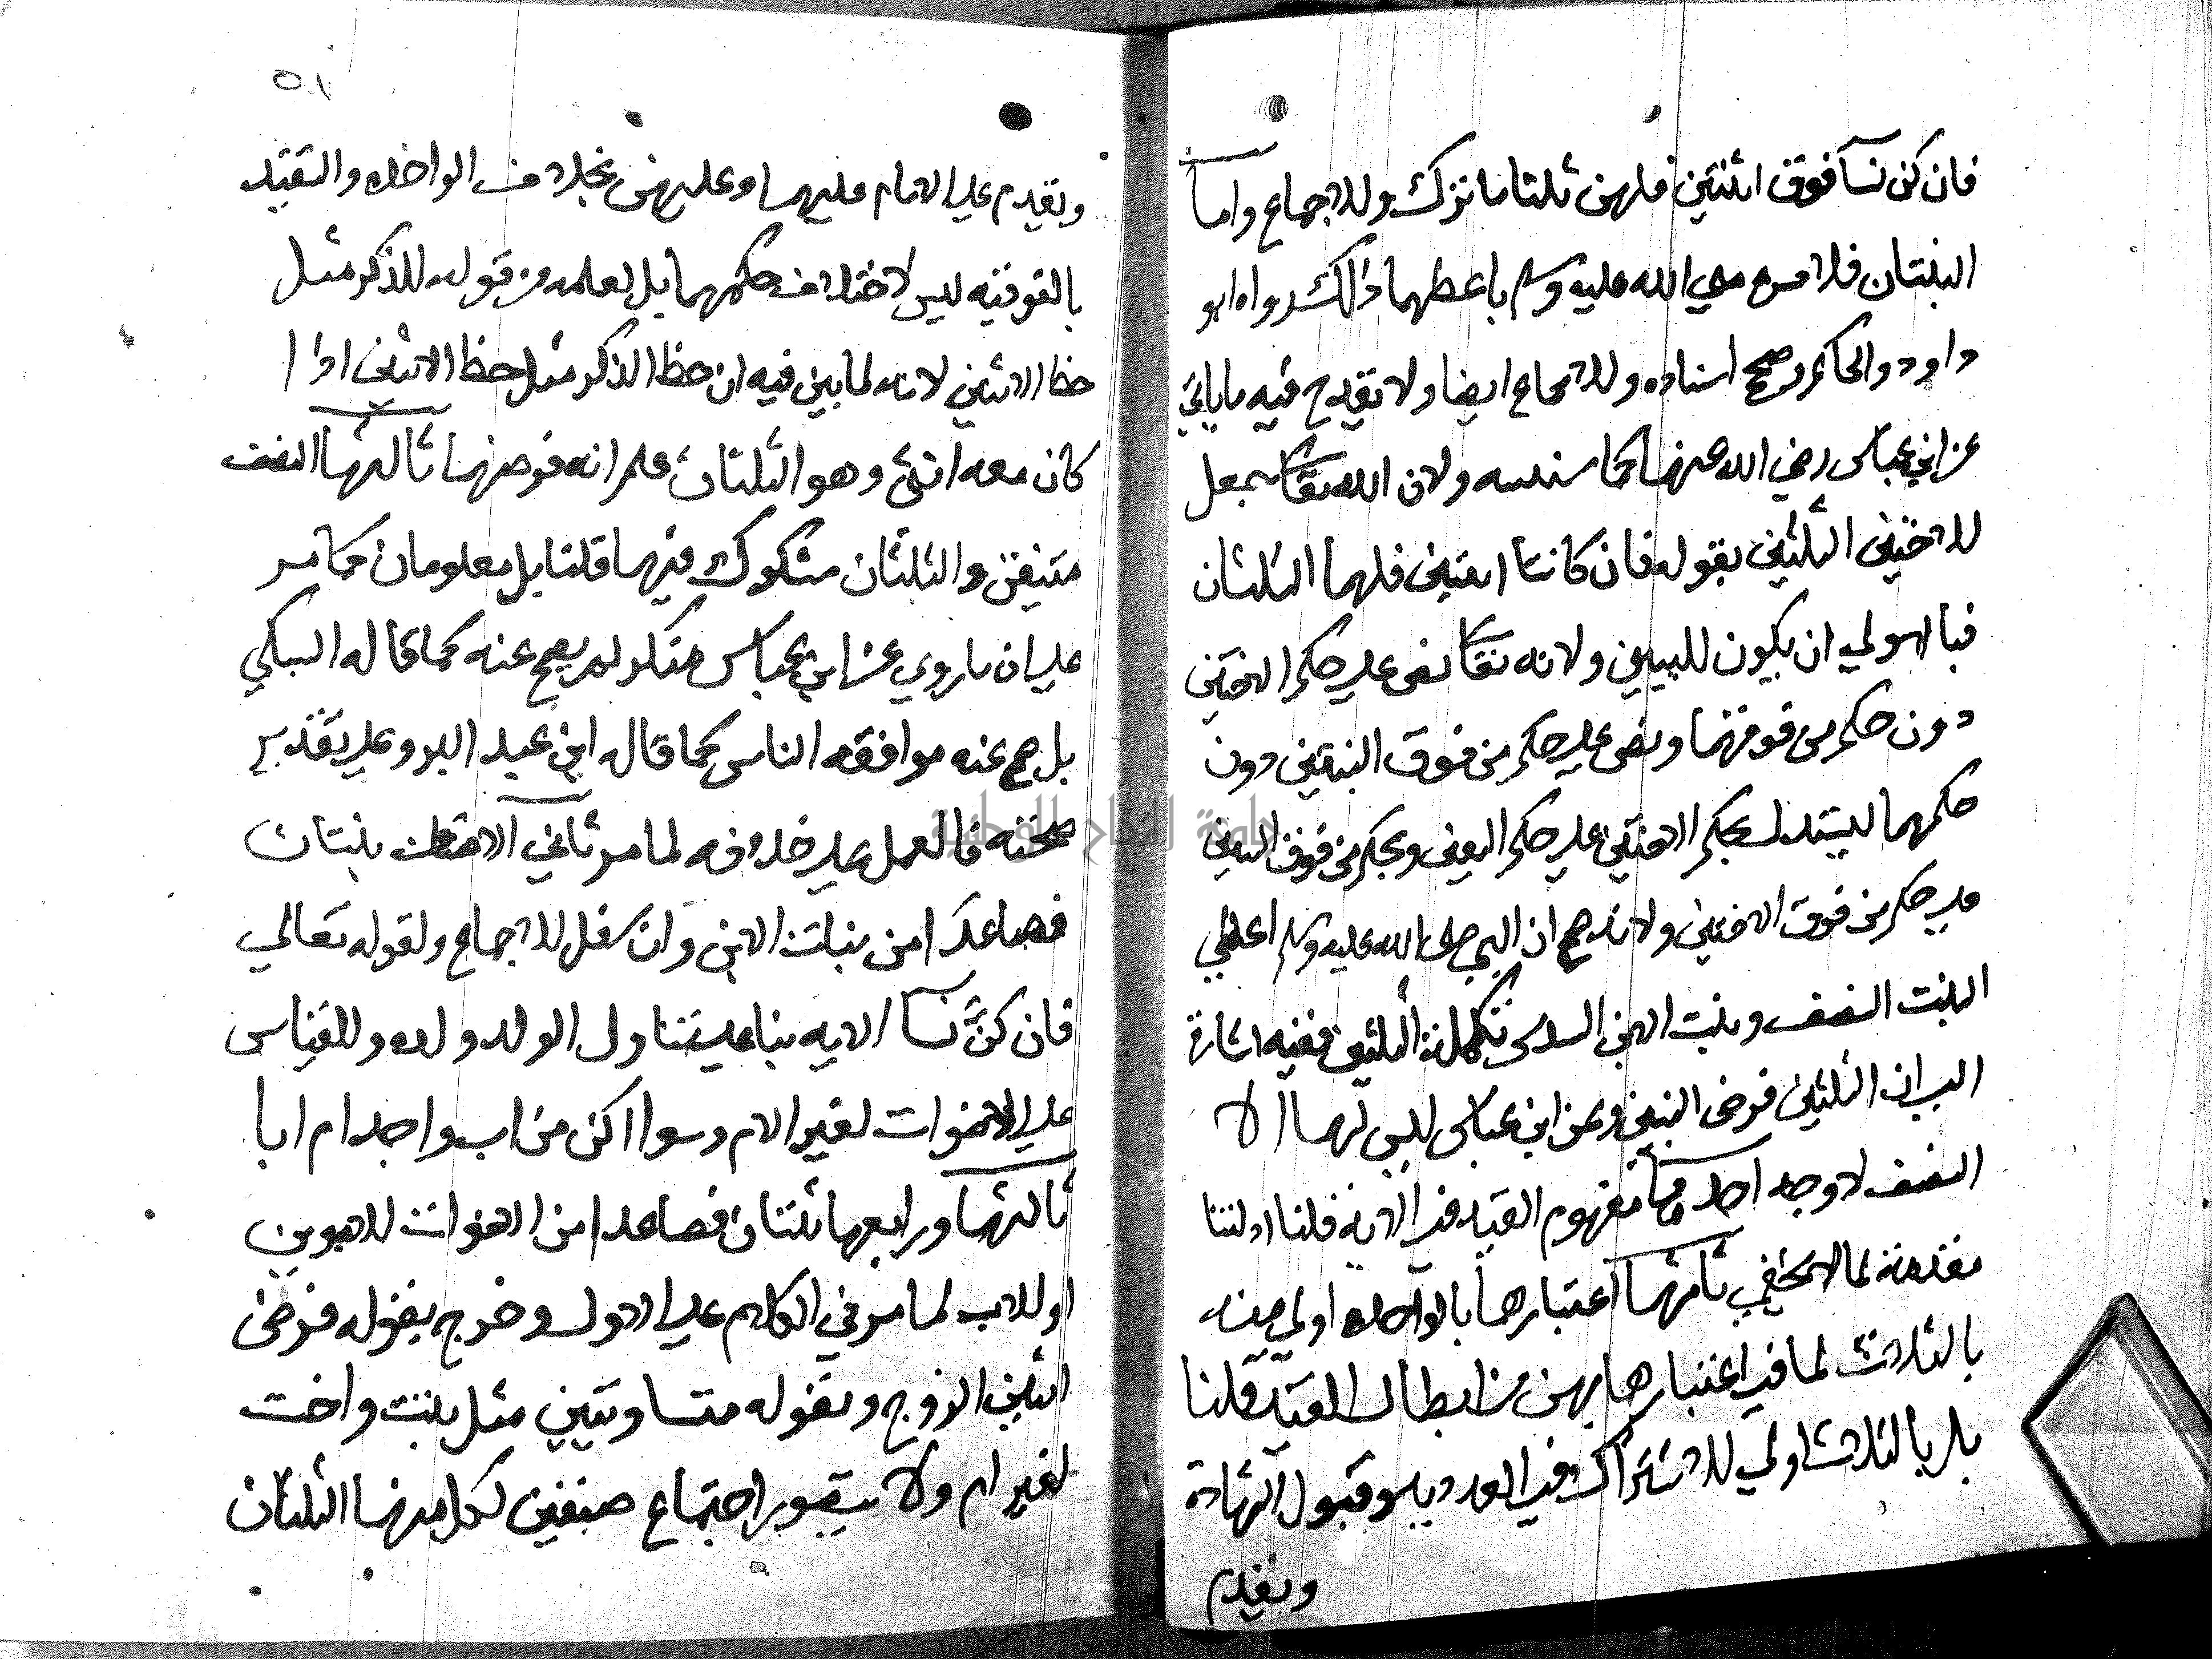 فان كن نسآ فوق اثنتين فلهن ثلثا ما ترك وللاجماع واما
البنتان فلامره صلي الله عليه وسلم باعطهما ذالك رواه ابو
داود والحاكم وصحح اسناده وللاجماع ايضا ولا يقدح فيه ما ياتي
عن ابن عباس رضي الله عنهما كما سنبينه ولان الله تعا جعل
للاختين الثلثين بقوله فان كانتا اثنتين فلهما الثلثان
فبالاولي ان يكون للبنتين ولانه تعا نص علي حكم الاختين
دون حكم من فوقهما ونص علي حكم من فوق البنتين دون
حكمهما ليستدل بحكم الاختين علي حكم البنتين وبحكم من فوق البنتين
علي حكم من فوق الاختين ولانه صح ان النبي صلي الله عليه وسلم اعطي
البنت النصف وبنت الابن السدس تكملة الثلثين ففيه اشارة
الي ان الثلثين فرض البنتين وعن ابن عباس ليس لهما الا
النصف لاوجه احدها مفهوم القيد في الاية قلنا ادلتنا
مقدمة لما لا يخفي ثانيها اعتبارها بالواحده اولي منه
بالثلاث لما في اعتبارها بهن من ابطال القيد قلنا
بل بالثلاث اولي للاشتراك في العدد بلو قبول الشهادة
وتقدم
٥١
وتقدم علي الامام عليهما وعليهن بخلاف الواحده والتقيد
بالفوقيه ليس لاختلاف حكمهما بل لعلمه من قوله للذكر مثل
حظ الانثيين لانه لما بين فيه ان حظ الذكر مثل حظ الانثيين اذا
كان معه انثي وهو الثلثان علم انه فرضهما ثالثها النصف
متيقن والثلثان مشكوك فيهما قلنا بل معلومان كما مر
علي ان ما روي عن ابن عباس منكر لم يصح عنه كما قاله السبكي
بل صح عنه موافقه الناس كما قال ابن عبد البر وعلي تقدير
صحته فالعمل علي خلافه لما مر ثاني الاصناف بنتان
فصاعدا من بنات الابن وان سفل للاجماع ولقوله تعالي
فان كنَّ نسآ الايه بنا علي تناول الولد ولده وللقياس
علي الاخوات لغير الام وسوا كن من اب واحد ام ابا
ثالثها ورابعها ثنتان فصاعدا من الاخوات للابوين
او للاب لما مر في الكلام علي الاول وخرج بقوله فرض
اثنين الزوج وبقوله متساويتين مثل بنت واخت
لغير ام ولا يتصور اجتماع صنفين لكل منهما الثلثان